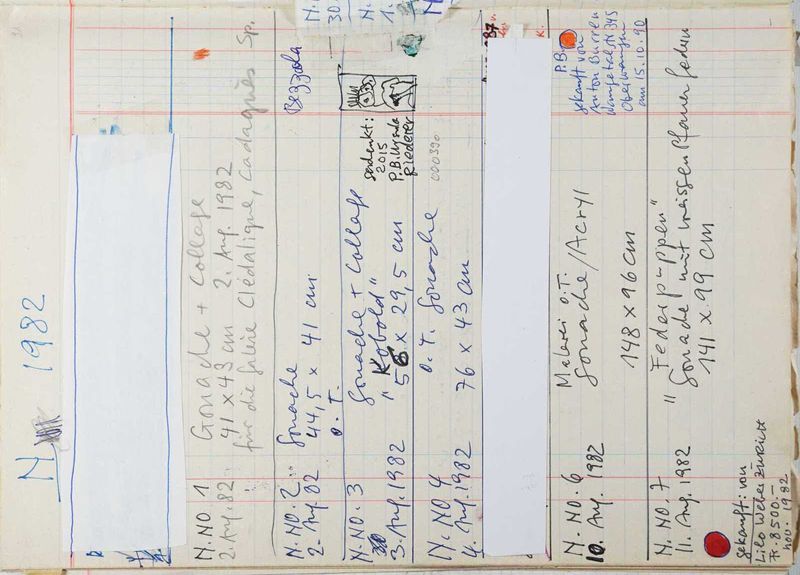 N 1982
N. NO. 1
2. Aug. 82
Gouache + Collage
41 x 43 cm 2. Aug. 1982
für die Galerie Clédalique, Cadaqués Sp.
N. NO. 2
2. Aug 82
Gouache
44,5 x 41 cm
o. T.
Bezzola
N. NO. 3
3. Aug. 1982
Gouache + Collage
"Kobold"
56 x 29,5 cm
geschenkt:
2015
P.B. Ursula
Riederer
N. NO 4
4. Aug. 1982
o. T. Gouache
76 x 43 cm
000390
N. NO. 6
10. Aug. 1982
Malerei o.T.
Gouache/Acryl
148 x 96 cm
P.B.
gekauft von
Anton Burren
Oberwangen
am 15.10.90
N. NO. 7
11. Aug. 1982
"Federpuppen"
Gouache mit weissen Pfauenfedern
141 x 99 cm
gekauft: von
Lilo Weber Zürich
Fr. 8500.-
Nov. 1982
N.
30.
N.
1.
K.